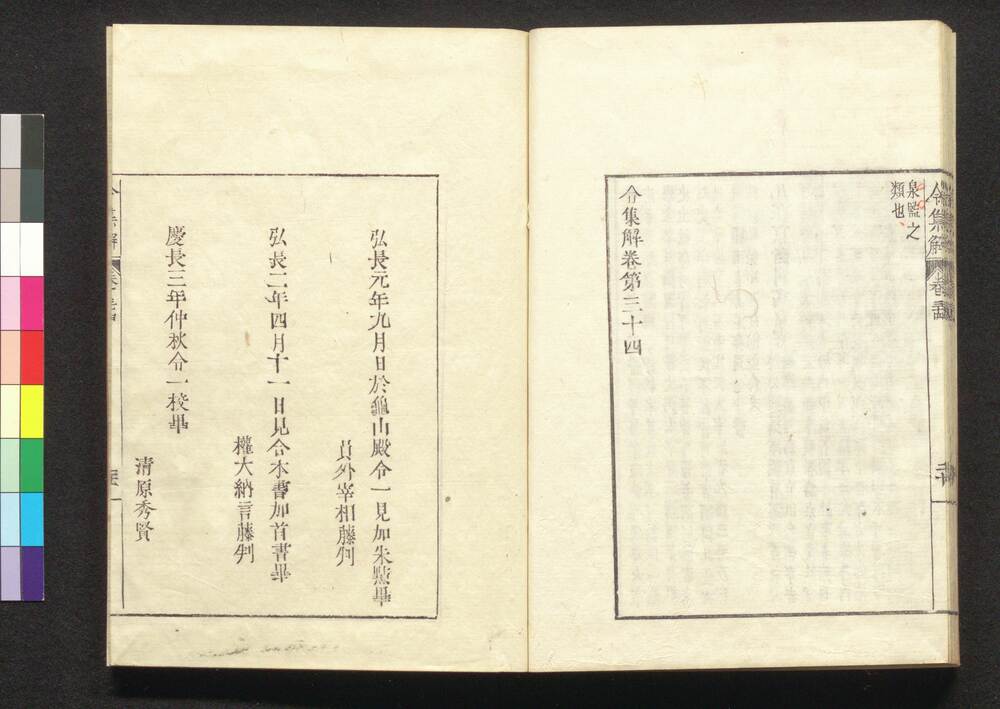 令集解 卷三十四
泉監之
類也
令集解卷第三十四
弘長元年九月日於龜山殿令一見加朱點畢
員外宰相藤判
弘長二年四月十一日見合本書加首書畢
權大納言藤判
慶長三年仲秋令一校畢
清原秀賢